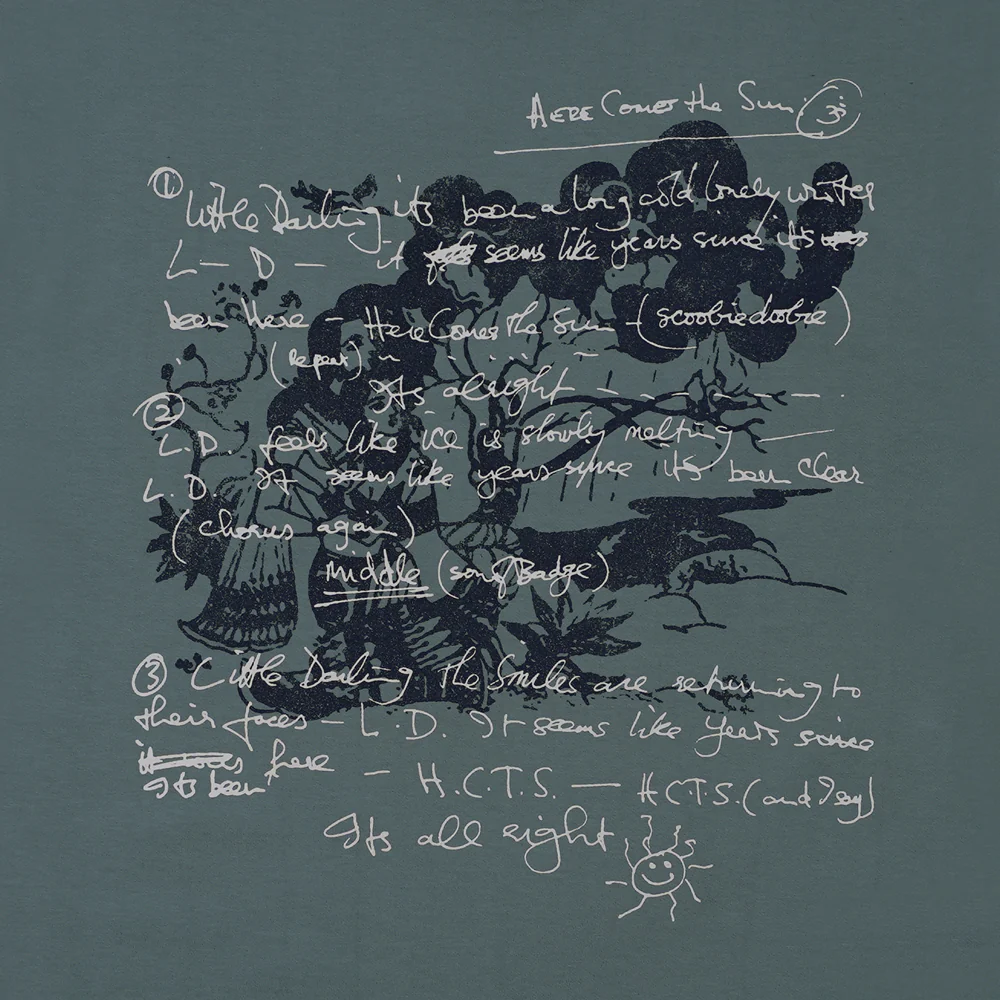 HERE Comes the Sun 3
① Little Darling its been a long cold lonely winter
L — D — it seems like years since its
been here — Here Comes the Sun — (scoobiedoobie)
(Repeat)
Its alright — — — — — .
②
L.D. feels like ice is slowly melting —
L.D. It seems like years since it's been clear
(chorus again)
middle (song Badge)
③ Little Darling the Smiles are returning to
their faces — L.D. It seems like years since
it was here — H.C.T.S. — H.C.T.S. (and I say)
Its been
Its all right